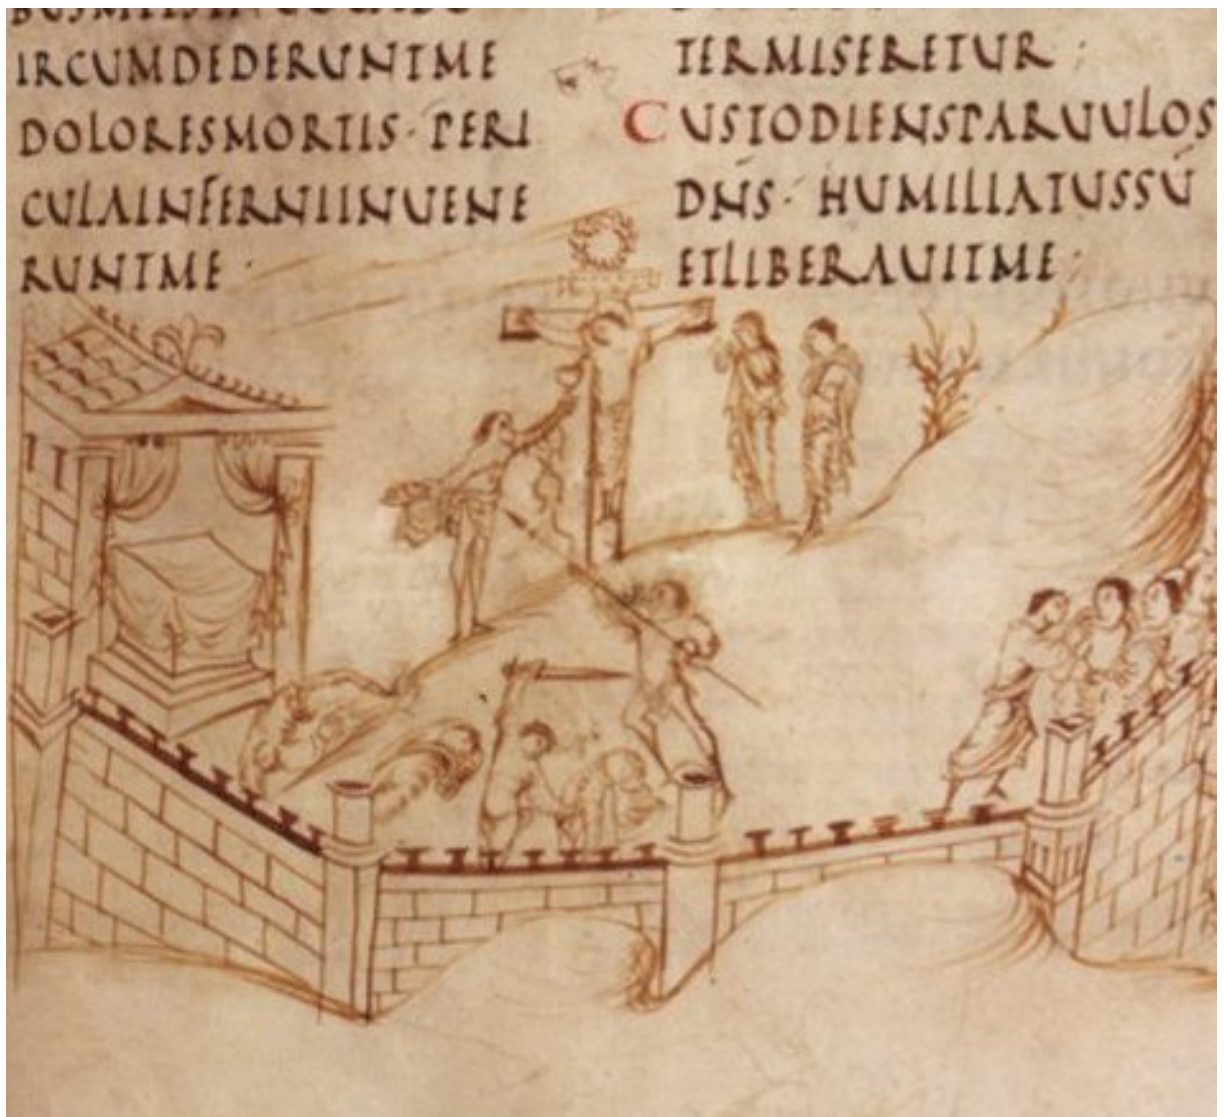 BUSMEISINUOCABO
IRCUMDEDERUNTME
DOLORESMORTIS· PERI
CULAINFERNIINUENE
RUNTME·
TERMISERETUR;
CUSTODIENSPARUULOS
DN̄S· HUMILIATUSSŪ
ETLIBERAUITME;